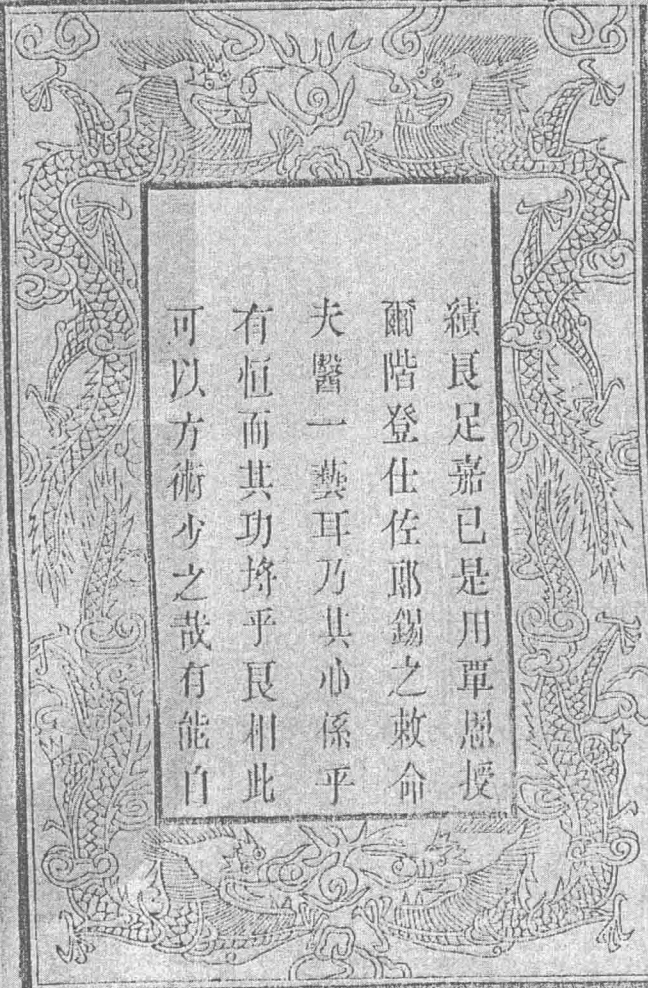 績良足嘉已是用覃恩授
爾階登仕佐郎錫之敕命
夫醫一藝耳乃其心係乎
有恒而其功埒乎良相此
可以方術少之哉有能自